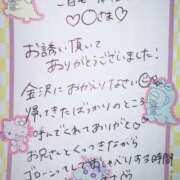 ♡〇さま♡
お誘い頂いて
ありがとうございました!
金沢におかえりなさい
帰ってきたばっかりのところ
呼んでくれてありがと♡
お兄さんとくっつきながら
ゴローンしておしゃべりする時間